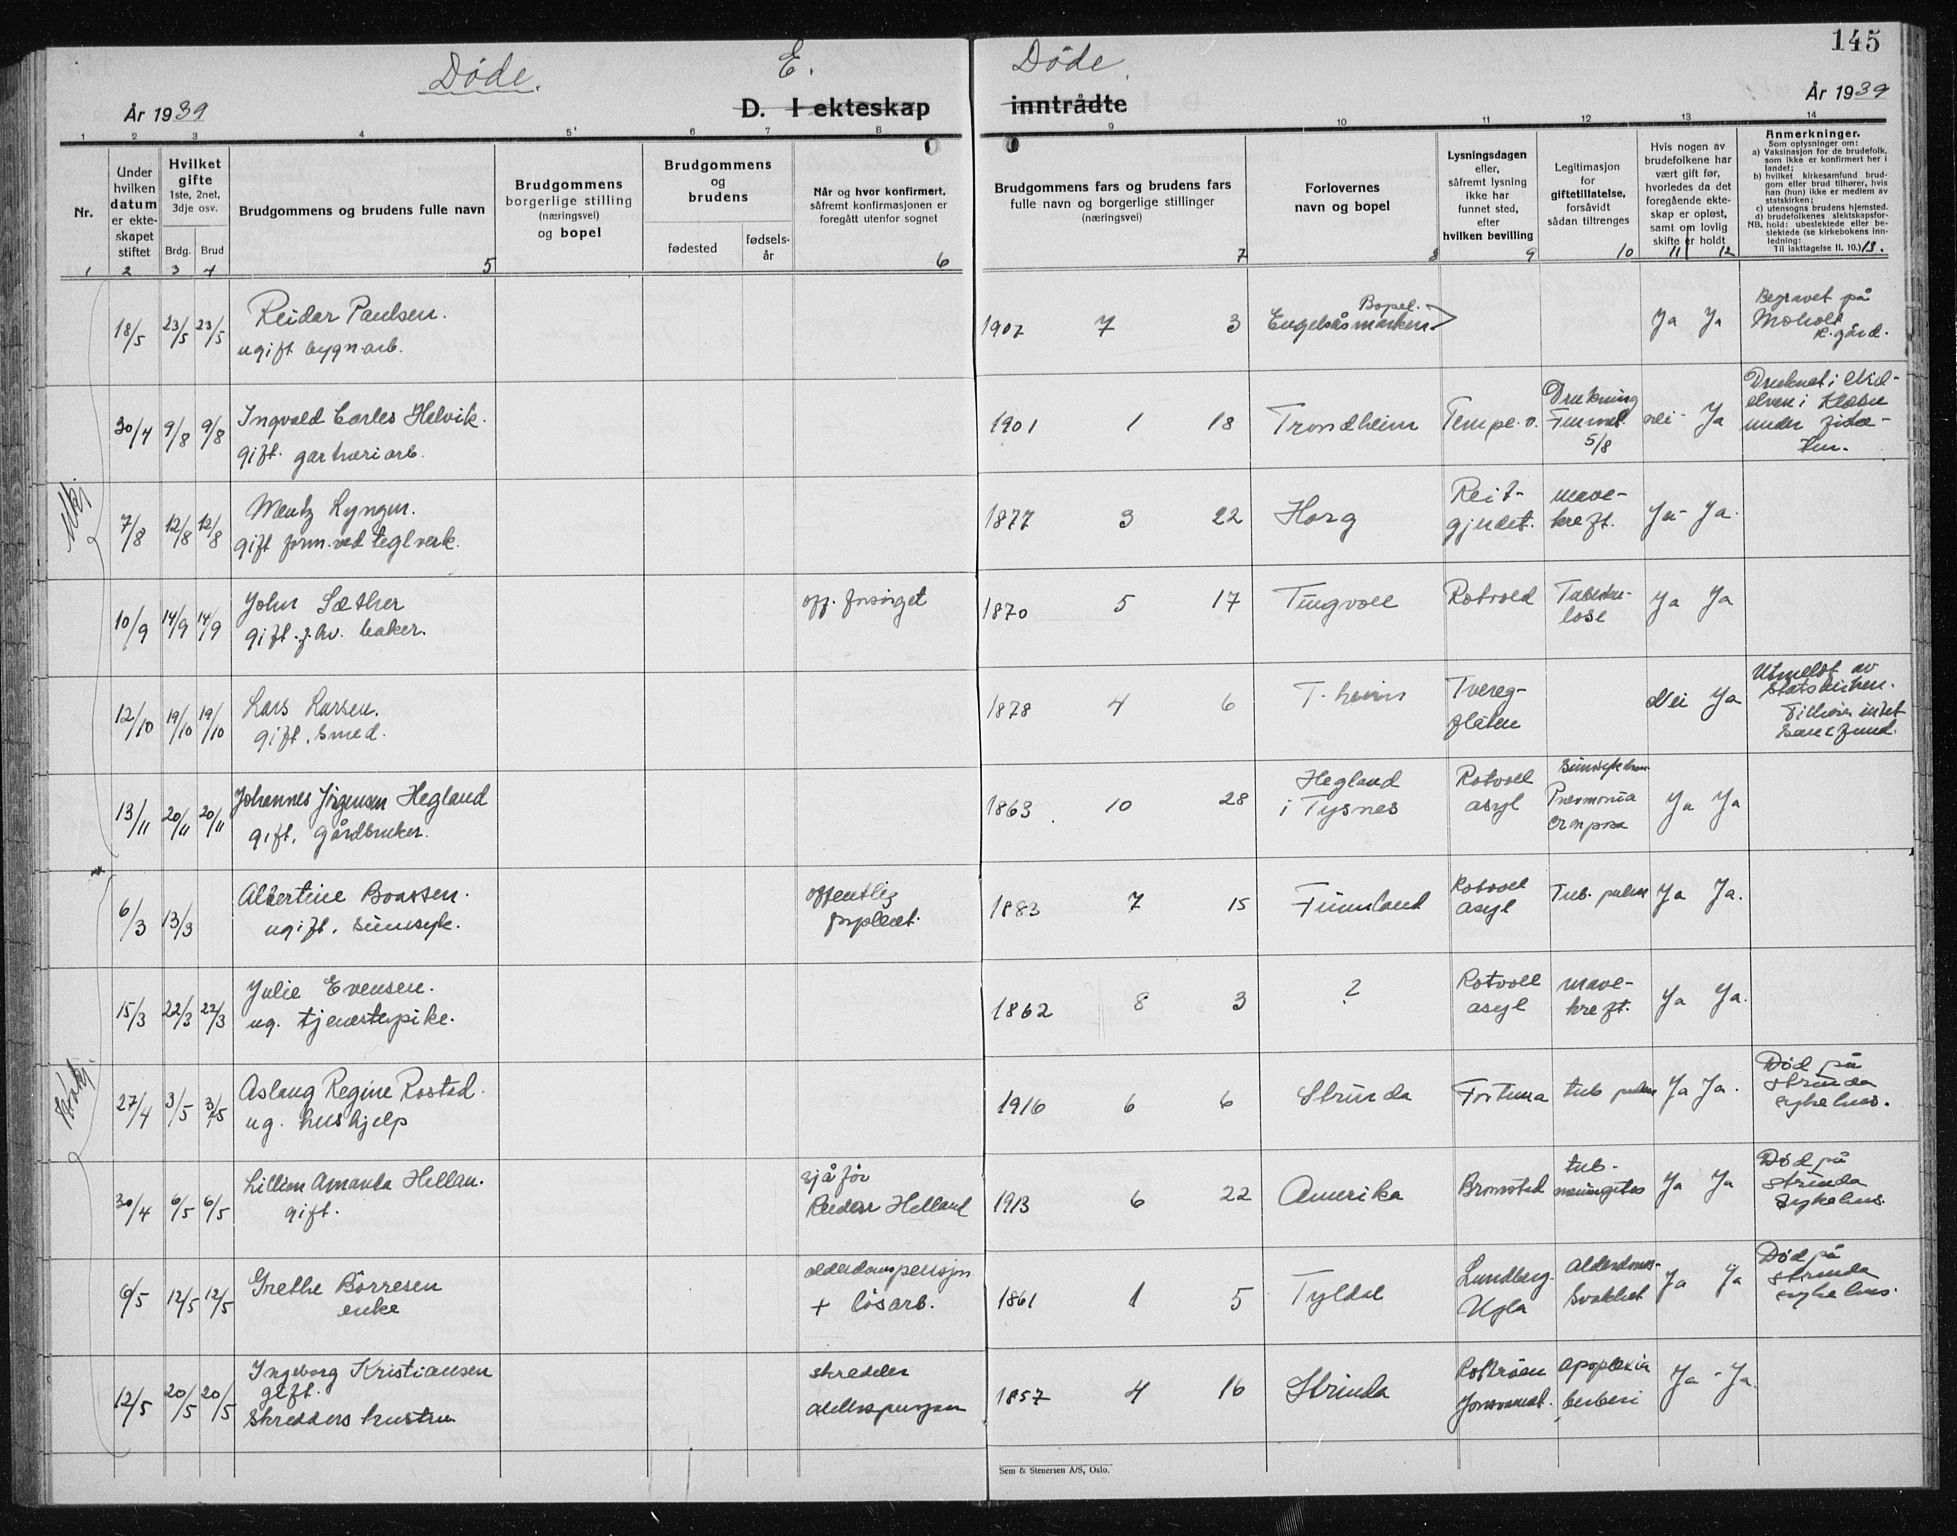 145
Døde. E. Døde.
År 1939 D. I ekteskap inntrådte År 1939
1 2 3 4 5 6 7 8 9 10 11 12 13 14
Nr.
Under hvilken datum er ekteskapet stiftet
Hvilket gifte 1ste, 2net, 3dje osv.
Brdg. Brud
Brudgommens og brudens fulle navn
Brudgommens borgerlige stilling (næringsvei) og bopel
Brudgommens og brudens
fødested fødsels-år
Når og hvor konfirmert, såfremt konfirmasjonen er foregått utenfor sognet
Brudgommens fars og brudens fars fulle navn og borgerlige stillinger (næringsvei)
Forlovernes navn og bopel
Lysningsdagen eller, såfremt lysning ikke har funnet sted, efter hvilken bevilling
Legitimasjon for giftetillatelse, forsåvidt sådan tiltrenges
Hvis nogen av brudefolkene har vært gift før, hvorledes da det foregående ekteskap er opløst, samt om lovlig skifte er holdt
Anmerkninger.
Som oplysninger om:
a) Vaksinasjon for de brudefolk, som ikke er konfirmert her i landet;
b) hvilket kirkesamfund brudgom eller brud tilhører, hvis han (hun) ikke er medlem av statskirken;
c) utensogns brudens hjemsted.
d) brudefolkenes slektskapsforhold: ubeslektede eller beslektede (se kirkebokens innledning:
NB. Til iakttagelse II. 10.)
1 2 3 4 5 6 7 8 9 10 11 12 13.
18/5 23/5 23/5 Reidar Paulsen. ugift bygn.arb. 1907 7 3 Bopel. Engelsåsmarken Ja Ja Begravet på Moholt k.gård.
30/7 9/8 9/8 Ingvald Carles Helvik. gift. gartneriarb. 1901 1 18 Trondheim Tempe.v. Drukning Funnet 5/8 nei - Ja Druknet i Nidelven i Klæbu under
7/8 12/8 12/8 Mentz Lyngen. gift form. ved teglverk. 1877 3 22 Horg Reitgjerdet. mavekreft. Ja - Ja.
10/9 14/9 14/9 John Sæther gift. f.hv. baker. off. forsørget 1870 5 17 Tingvoll Rotvold Tuberkulose Ja Ja
12/10 19/10 19/10 Lars Larsen. gift. smed. 1878 4 6 T.heim Tvereggflåten Nei Ja Utmeldt av Statskirken. Tilhører intet samfund.
13/11 20/11 20/11 Johannes Jørgensen Hegland gift. gårdbruker. 1863 10 28 Hegland i Tysnes Rotvoll asyl Pneumonia Ja Ja
6/3 13/3 Albertine Boassen. ugift. sinnsyk. offentlig forpleiet. 1883 7 15 Finnland Rotvoll asyl Tub. pulm Ja Ja.
15/3 22/3 22/3 Julie Evensen. ug. tjenestepike. 1862 8 3 ? Rotvoll asyl mavekreft. Ja Ja.
27/4 3/5 3/5 Aslaug Regine Rostad. ug. hushjelp 1916 6 6 Strinda Fortuna tub pulm Ja Ja. Død på Strinda sykehus.
30/4 6/5 6/5 Lillian Amanda Hellan. gift. sjåfør Reidar Helland 1913 6 22 Amerika Bromstad tub. meningitis Ja Ja Død på Strinda sykehus
6/5 12/5 12/5 Grethe Börresen enke alderdomspensjon + løsarb. 1861 1 5 Tyldal Lundberg Ugla Alderdomssvakhet Ja Ja Død på Strinda sykehus.
12/5 20/5 20/5 Ingeborg Kristiansen gift. skredders hustru skredder alderspensjon 1857 4 16 Strinda Jonsvannet. apoplexia Ja - Ja.
Sem & Stenersen A/S, Oslo.